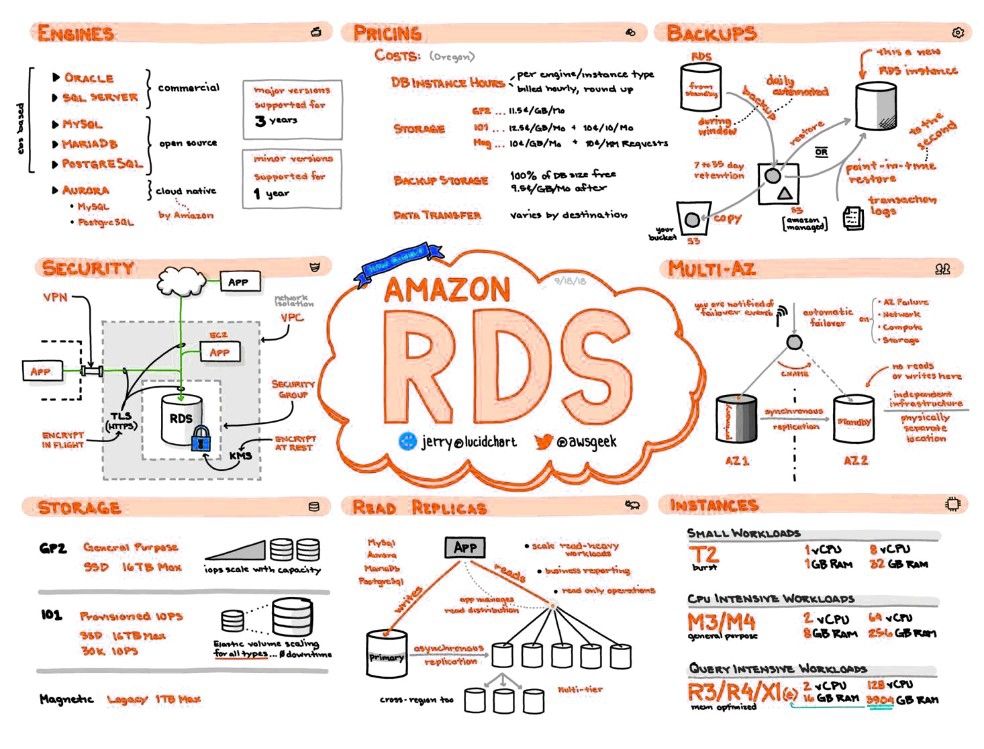 ENGINES
ebs based
ORACLE
SQL SERVER
commercial
MYSQL
MARIADB
POSTGRESQL
open source
AURORA
• MySQL
• PostgreSQL
cloud native
by Amazon
major versions
supported for
3 years
minor versions
supported for
1 year
PRICING
COSTS: (Oregon)
DB INSTANCE HOURS
per engine/instance type
billed hourly, round up
STORAGE
GP2 ... 11.5¢/GB/Mo
IO1 ... 12.5¢/GB/Mo + 10¢/IO/Mo
Mag ... 10¢/GB/Mo + 10¢/MM Requests
BACKUP STORAGE
100% of DB size free
9.5¢/GB/Mo after
DATA TRANSFER
varies by destination
BACKUPS
RDS
from standby
daily
automated
backup
during
window
this a new
RDS instance
restore
OR
to the
second
point-in-time
restore
7 to 35 day
retention
S3
[amazon
managed]
transaction
logs
copy
your
bucket
S3
SECURITY
VPN
APP
network
isolation
VPC
EC2
APP
APP
TLS
(HTTPS)
RDS
SECURITY
GROUP
ENCRYPT
IN FLIGHT
ENCRYPT
AT REST
KMS
9/18/18
AMAZON
RDS
jerry@lucidchart
@awsgeek
MULTI-AZ
you are notified of
failover event
automatic
failover
on
• AZ Failure
• Network
• Compute
• Storage
CNAME
primary
synchronous
replication
standby
no reads
or writes here
independent
infrastructure
physically
separate
location
AZ1
AZ2
STORAGE
GP2
General Purpose
SSD 16TB Max
iops scale with capacity
IO1
Provisioned IOPS
SSD 16TB Max
30K IOPS
Elastic volume scaling
for all types... 0 downtime
Magnetic Legacy 1TB Max
READ REPLICAS
MySql
Aurora
MariaDB
PostgreSql
App
writes
reads
• scale read-heavy
workloads
• business reporting
• read only operations
app manages
read distribution
primary
asynchronous
replication
cross-region too
multi-tier
INSTANCES
SMALL WORKLOADS
T2
burst
1 vCPU
1GB RAM
8 vCPU
32 GB RAM
CPU INTENSIVE WORKLOADS
M3/M4
general purpose
2 vCPU
8GB RAM
64 vCPU
256 GB RAM
QUERY INTENSIVE WORKLOADS
R3/R4/X1(e)
mem optimized
2 vCPU
16 GB RAM
128 vCPU
3904 GB RAM